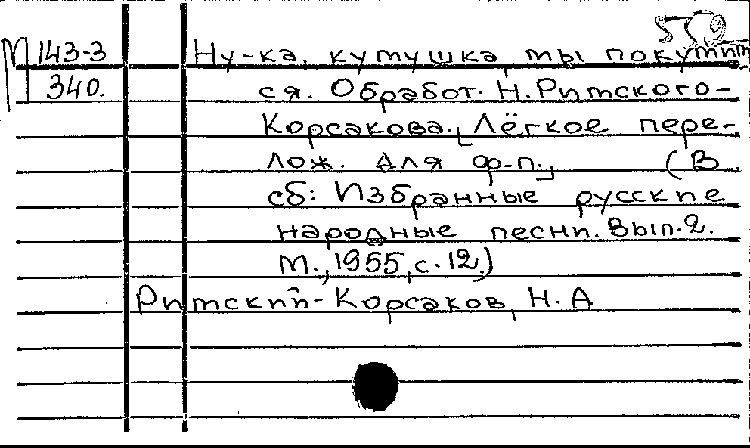 М 143-3 Ну-ка, кутушка, ты покутит
340. ся. Обработ. Н. Римского-
Корсакова. [Лёгкое пере-
лож. для ф-п.] (В
сб: Избранные русские
народные песни. Вып. 2.
М., 1955, с. 12.)
Римский-Корсаков, Н. А